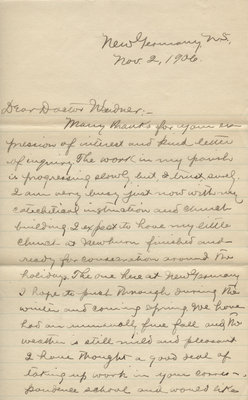 New Germany N.S.
Nov. 2, 1906.
Dear Doctor Weidner:-
Many thanks for your ex-
pression of interest and kind letter
of inquiry. The work in my parish
is progressing slowly but I trust surely.
I am very busy just now with my
catechetical instruction and church
building. I expect to have my little
church at Newburn finished and
ready for consecration around the
holidays. The one here at New Germany
I hope to push through during the
winter and coming spring. We have
had an unusually fine fall and the
weather is still mild and pleasant
I have thought a good deal of
taking up work in your corres-
pondence school and would like